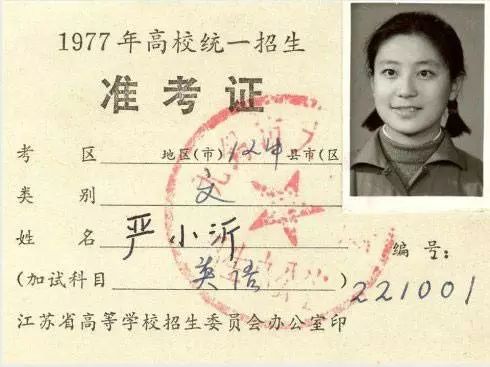 1977年高校统一招生
准考证
考 区 地区(市)12中县市(区
类 别 文
姓 名 严小沂 编号:
(加试科目 英语 ) 221001
江苏省高等学校招生委员会办公室印